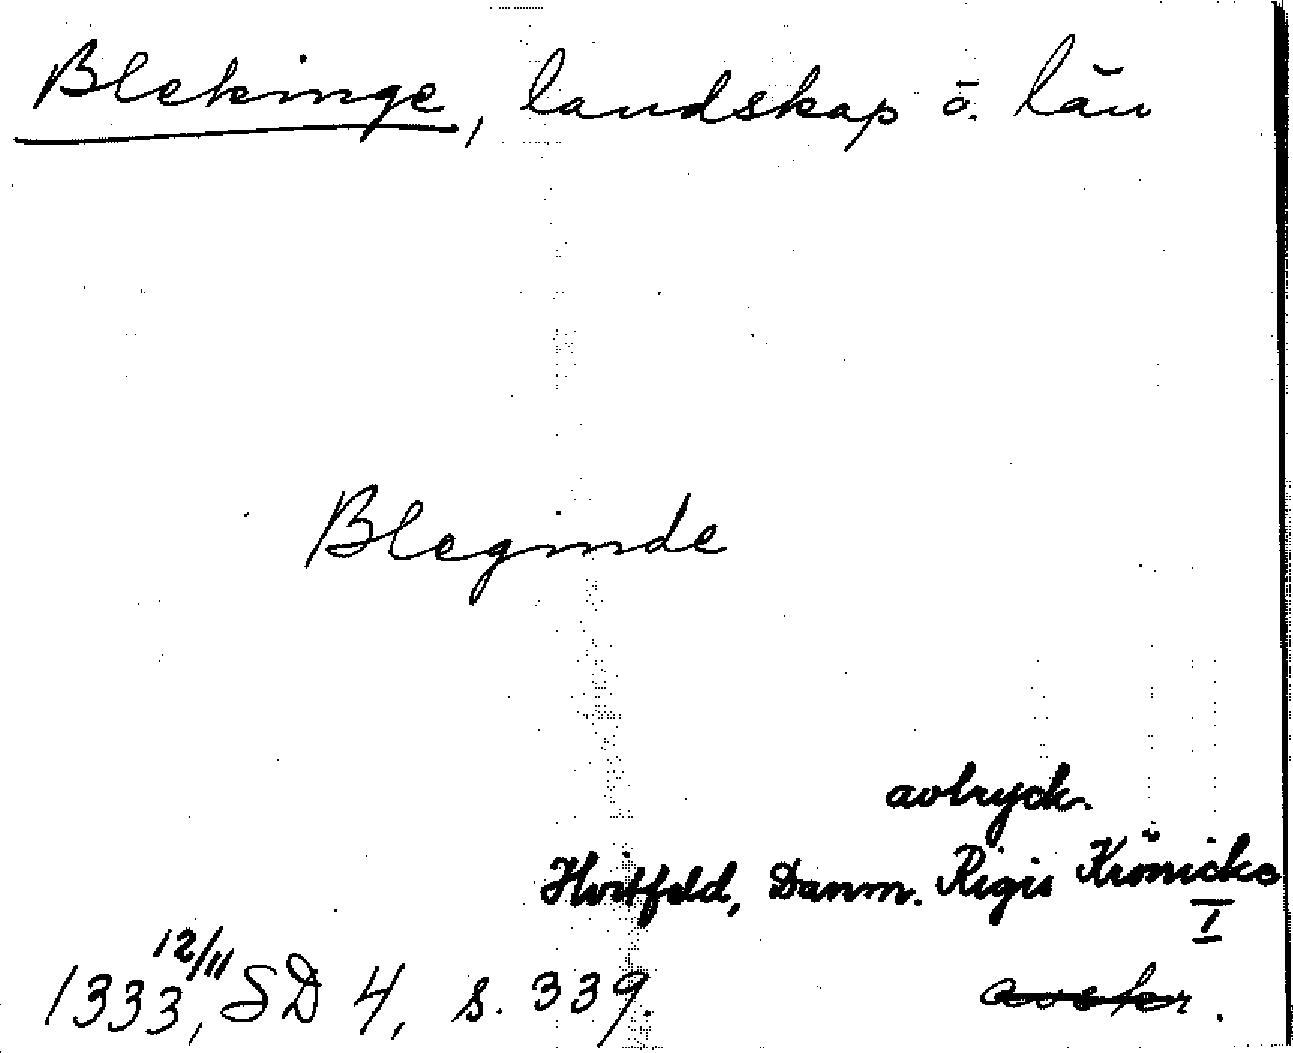 Blekinge, landskap o. län
Bleginde
avtryck.
Hvitfeld, Danm. Rigis Krönicke
I
1333 12/11, SD 4, s. 339.
avskr.